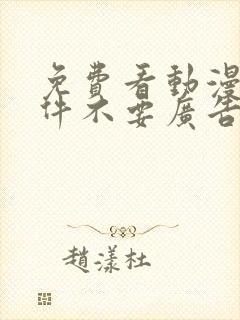 免費看動漫
件不要廣告
趙漾杜